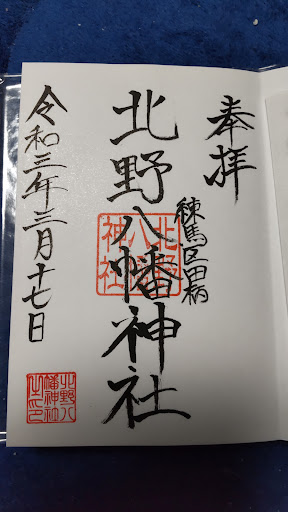 奉拝
練馬区田柄
北野八幡神社
北野
八幡
神社
令和三年三月十七日
北野八
幡神社
之印